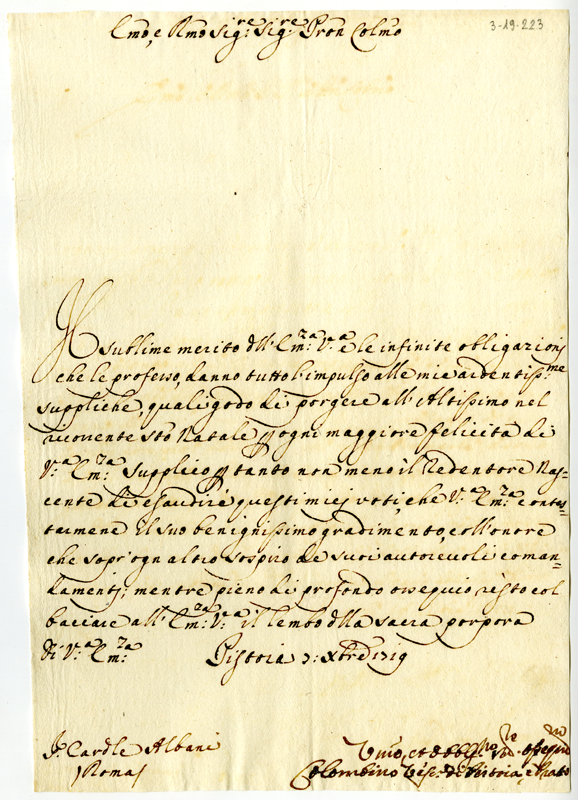 3-19-223
Emo, e Rmo Sig:re Sig:re Pron Colmo
Il sublime merito dll' Em:za V:a e le infinite obligazioni
che le professo, danno tutto l'impulso alle mie ardentiss:me
suppliche, quali godo di porgere all' Altissimo nel
ricorrente Sto Natale p ogni maggiore felicità di
V:a Em:za Supplico p tanto non meno il Redentore Nas-
cente di esaudire questi miej voti, che V:a Em:za contes-
tarmene il suo benignissimo gradimento, coll' onore
che sopr' ogn altro sospiro de suoi autorevoli coman-
damenti; mentre pieno di profondo ossequio resto col
baciare all' Em:za V:a il lembo dlla sacra porpora
Di V:a Em:za Pistoia 7: Xbre 1719
Sr Cardle Albani
Roma
Umo, et Obblmo
Colombino Vesc: di Pistoia, e Prato